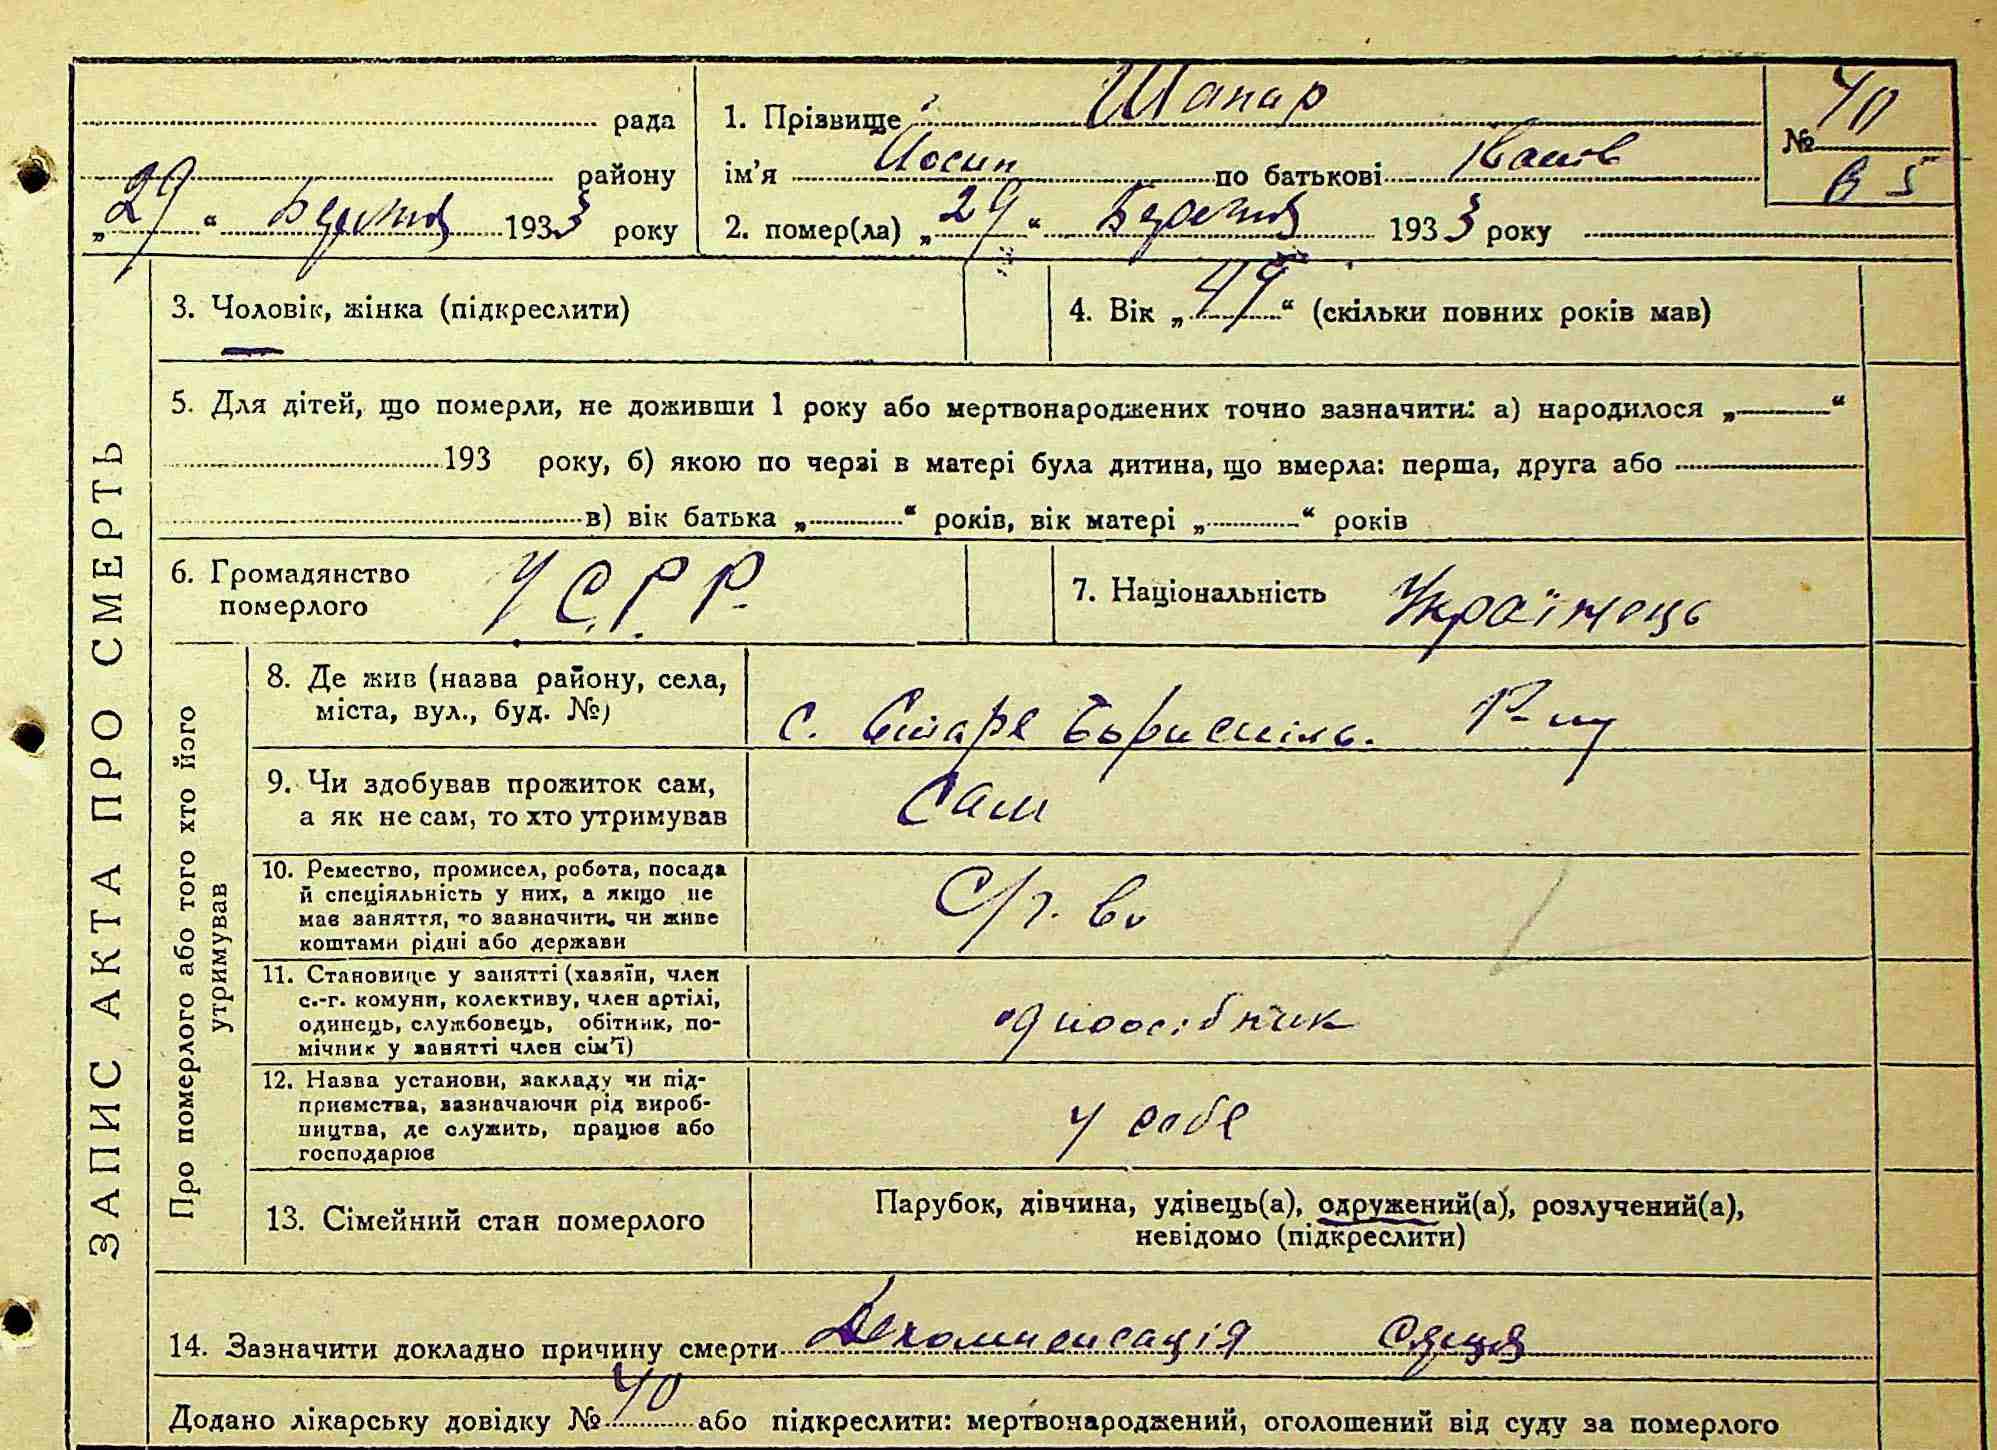 ЗАПИС АКТА ПРО СМЕРТЬ
рада
району
„29“ Березня 1933 року
1. Прізвище Шапар
ім'я Йосип по батькові Іванов
2. помер(ла) „29“ Березня 1933 року
№ 40
3. Чоловік, жінка (підкреслити)
4. Вік „49“ (скільки повних років мав)
5. Для дітей, що померли, не доживши 1 року або мертвонароджених точно зазначити: а) народилося „ “
193 року, б) якою по черзі в матері була дитина, що вмерла: перша, друга або
в) вік батька „ “ років, вік матері „ “ років
6. Громадянство
померлого
У С.Р.Р.
7. Національність Українець
Про померлого або того хто його
утримував
8. Де жив (назва району, села,
міста, вул., буд. №)
с. Старе Бориспіль. Р-ну
9. Чи здобував прожиток сам,
а як не сам, то хто утримував
Сам
10. Ремество, промисел, робота, посада
й спеціяльність у них, а якщо не
має заняття, то зазначити, чи живе
коштами рідні або держави
С/г. во
11. Становище у занятті (хазяїн, член
с.-г. комуни, колективу, член артілі,
одинець, службовець, обітник, по-
мічник у занятті член сім'ї)
одноосібник
12. Назва установи, закладу чи під-
приємства, зазначаючи рід вироб-
ництва, де служить, працює або
господарює
у себе
13. Сімейний стан померлого
Парубок, дівчина, удівець(а), одружений(а), розлучений(а),
невідомо (підкреслити)
14. Зазначити докладно причину смерти Декомпенсація Сєрця
Додано лікарську довідку № 40 або підкреслити: мертвонароджений, оголошений від суду за померлого